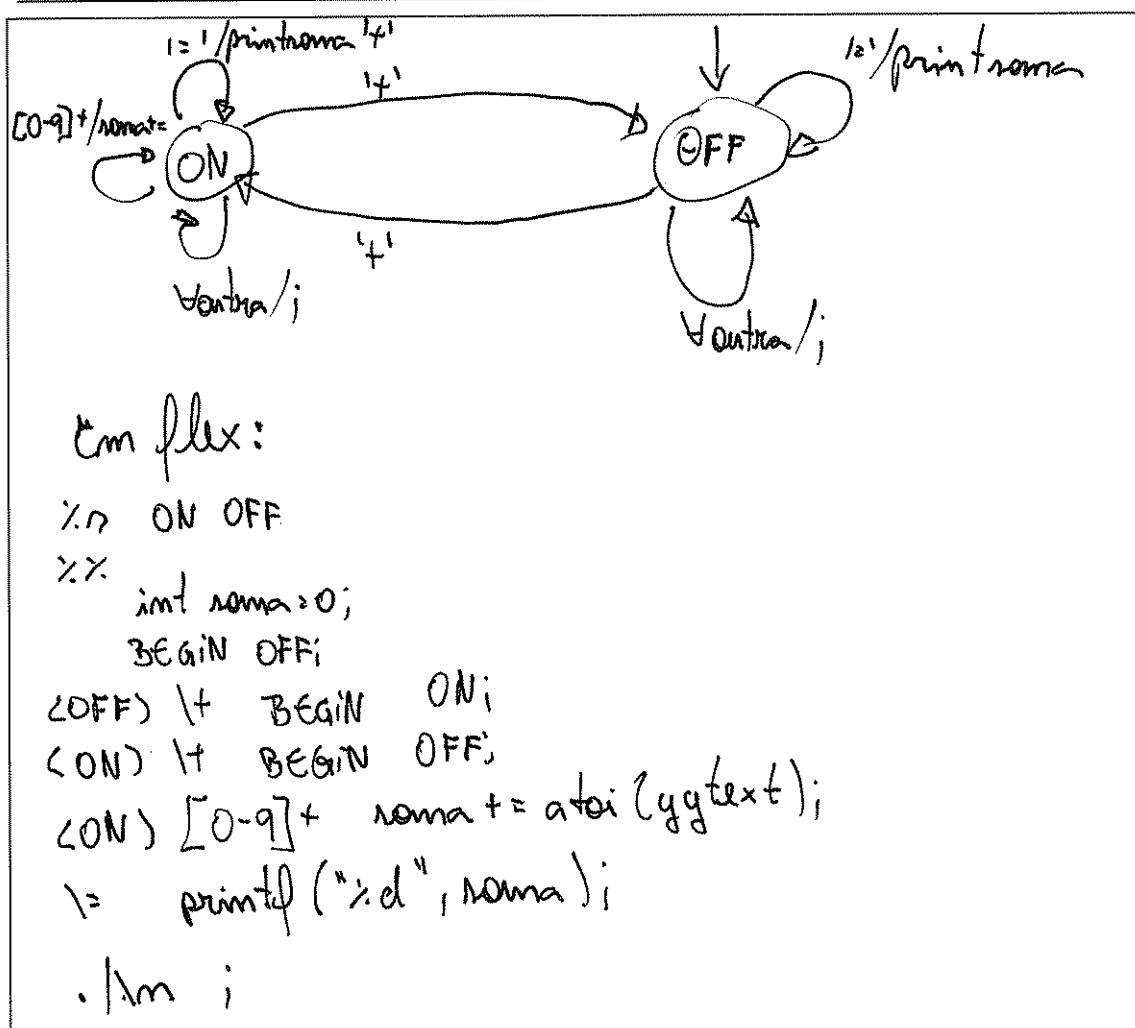 '=' /printsoma '+'
'+'
'=' /printsoma
[0-9]+/soma+=
ON
OFF
'+'
∀outra/;
∀outra/;
Em flex:
%s ON OFF
%%
int soma=0;
BEGIN OFF;
<OFF> \+ BEGIN ON;
<ON> \+ BEGIN OFF;
<ON> [0-9]+ soma += atoi(yytext);
\= printf("%d", soma);
.|\n ;